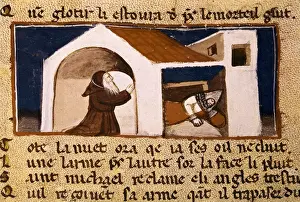 ne glotir li estoura d p̄ le morteil glut.
Tote la nuet ora qe la ses oil ne clut
Une larme p̄ l'autre sor la face li pluit
aint michael reclame e li angles trestuit
il reqoivet sa arme qāt il trapaser du